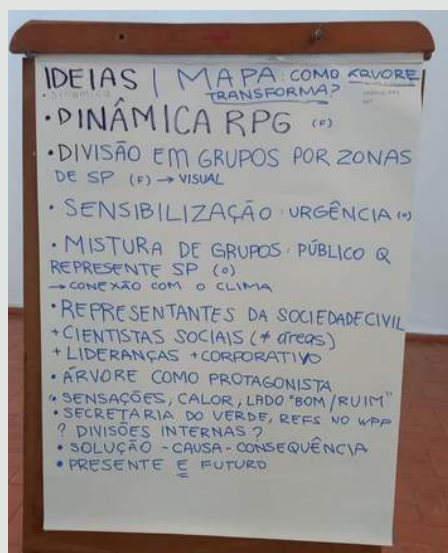 IDEIAS | MAPA: COMO ÁRVORE
• DINÂMICA TRANSFORMA?
• DINÂMICA RPG (F)
• DIVISÃO EM GRUPOS POR ZONAS
DE SP (F) → VISUAL
• SENSIBILIZAÇÃO: URGÊNCIA (O)
• MISTURA DE GRUPOS: PÚBLICO Q
REPRESENTE SP (O)
→ CONEXÃO COM O CLIMA
• REPRESENTANTES DA SOCIEDADE CIVIL
+ CIENTISTAS SOCIAIS (≠ áreas)
+ LIDERANÇAS + CORPORATIVO
• ÁRVORE COMO PROTAGONISTA
• SENSAÇÕES, CALOR, LADO "BOM/RUIM"
• SECRETARIA DO VERDE, REFS NO WPP
? DIVISÕES INTERNAS?
• SOLUÇÃO - CAUSA - CONSEQUÊNCIA
• PRESENTE E FUTURO